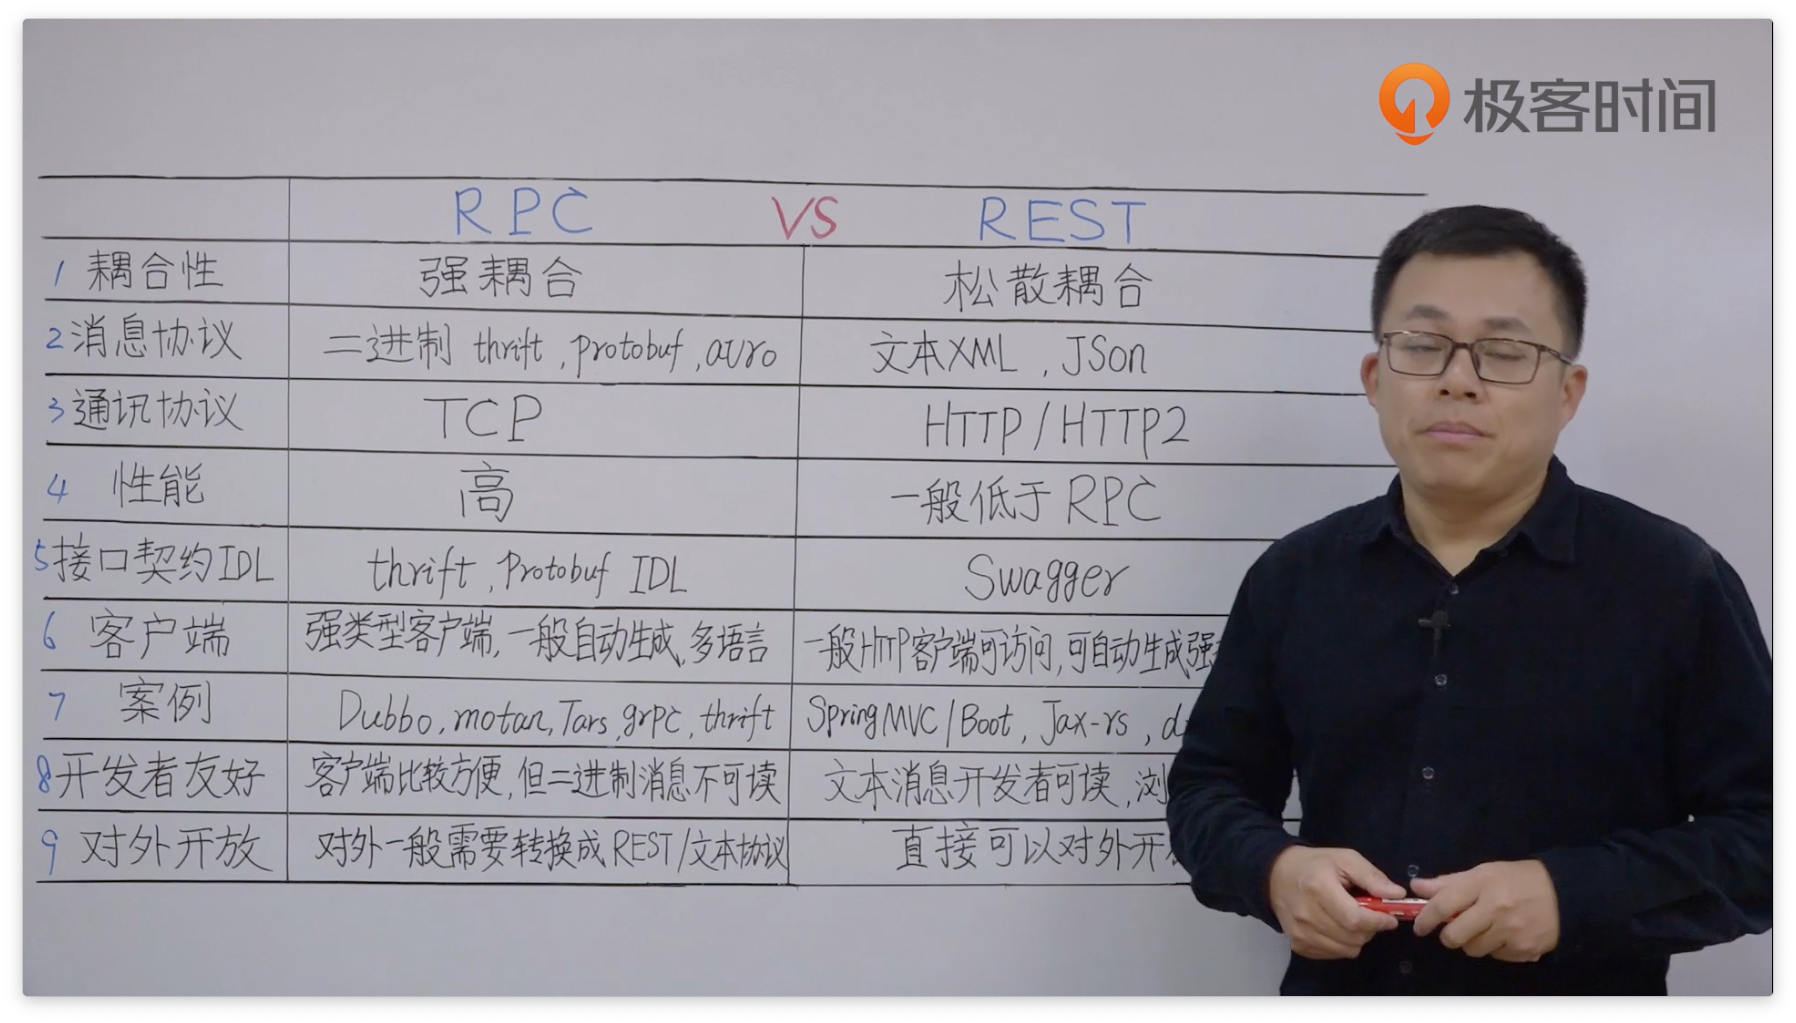 极客时间
RPC VS REST
1 耦合性 强耦合 松散耦合
2 消息协议 二进制 thrift, protobuf, avro 文本XML, JSon
3 通讯协议 TCP HTTP/HTTP2
4 性能 高 一般低于 RPC
5 接口契约IDL thrift, Protobuf IDL Swagger
6 客户端 强类型客户端, 一般自动生成, 多语言 一般HTTP客户端可访问, 可自动生成强
7 案例 Dubbo, motan, Tars, grpc, thrift SpringMVC/Boot, Jax-rs,
8 开发者友好 客户端比较方便, 但二进制消息不可读 文本消息开发者可读, 浏
9 对外开放 对外一般需要转换成 REST/文本协议 直接可以对外开